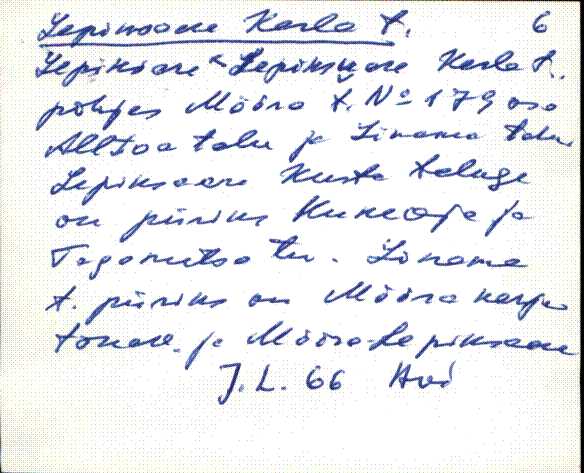 Lepiksaare Karla t. 6
Lepiksaare < Lepiksaare Karla t.
põhjas Mööra t. No 179 osa
Allsoo talu ja Linama talu
Lepiksaare Kusta taluga
on piiriks Kuneoja ja
Tagametsa tu. Linama
t. piiriks on Mööra karja
tanav ja Mööra-Lepiksaare
J. L. 66 Avi